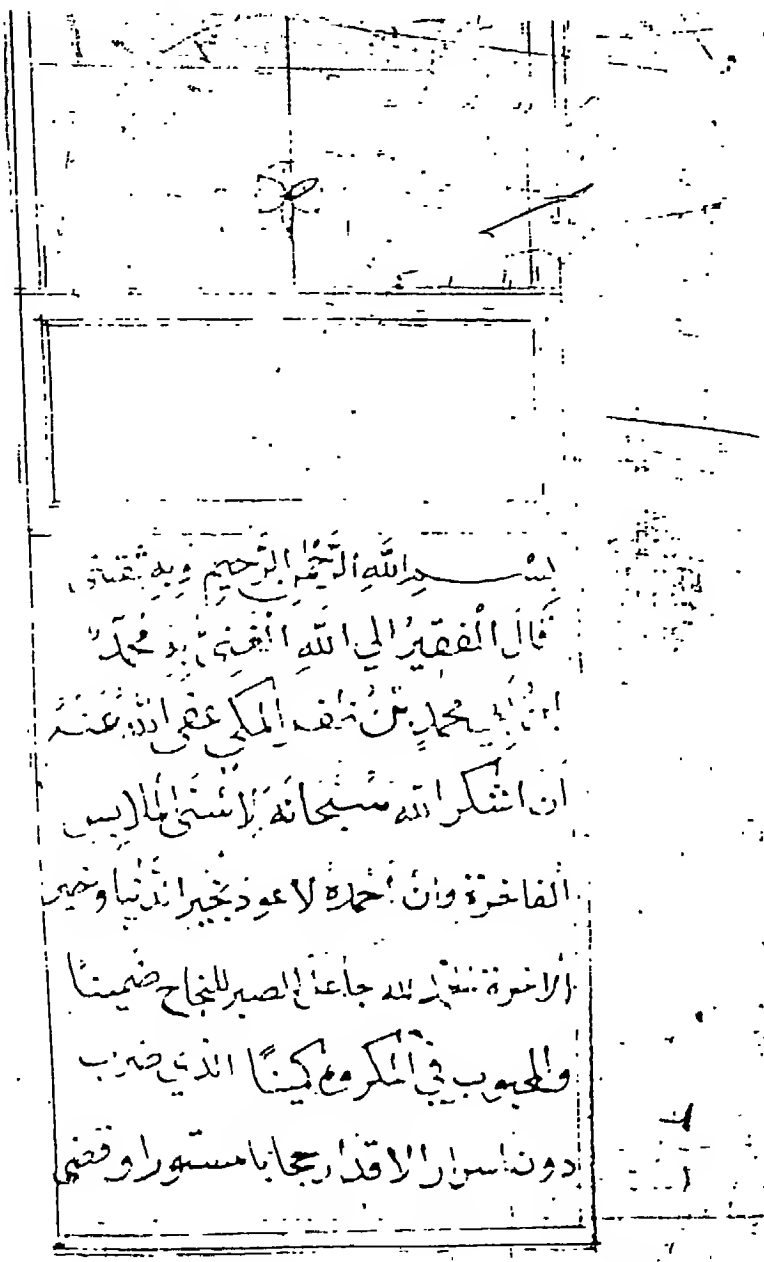 بسم الله الرحمن الرحيم وبه ثقتي
قال الفقير الي الله الغني به محمد
ابن ابي محمد بن ظفر المكي عفى الله عنه
ان اشكر الله سبحانه لاسنى الملابس
الفاخرة وان احمده لاعوذ بخير الدنيا وخير
الاخرة لله جاعل الصبر للنجاح ضمينا
والمحبوب في المكروه كمينا الذي ضرب
دون اسرار الاقدار حجابا مستورا وقضى